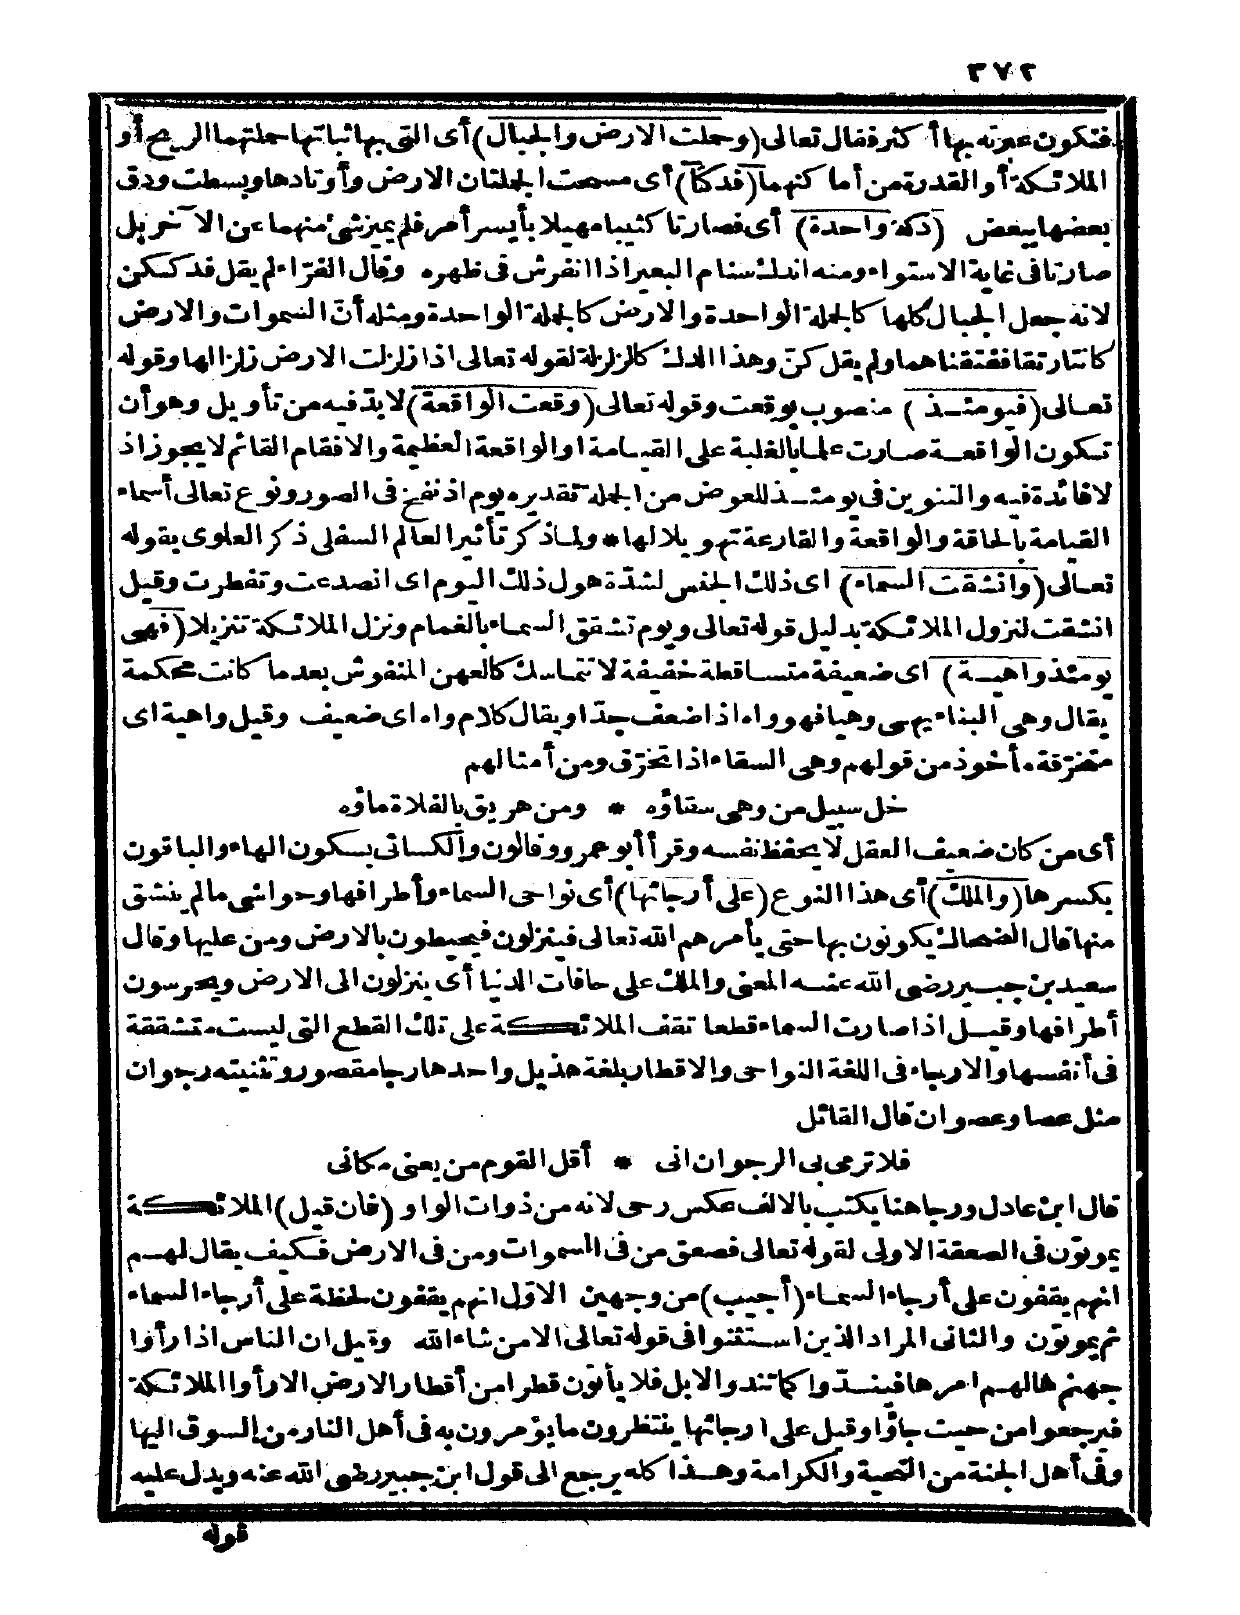 ٣٧٢
فتكون عبرته بها أكثر فقال تعالى (وحملت الارض والجبال) أى التى بها ثباتها حملتهما الريح أو
الملائكة أو القدرة من أماكنهما (فدكتا) أى مسحت الجملتان الارض وأوتادها وبسطت ودق
بعضها ببعض (دكة واحدة) أى فصارتا كثيبا مهيلا بأيسر أمر فلم يميز شئ منهما عن الآخر بل
صارتا فى غاية الاستواء ومنه اندك سنام البعير اذا انفرش فى ظهره وقال الفرّاء لم يقل فدككن
لانه جعل الجبال كلها كالجملة الواحدة والارض كالجملة الواحدة ومثله أنّ السموات والارض
كانتا رتقا ففتقناهما ولم يقل كنّ وهذا الدك كالزلزلة لقوله تعالى اذا زلزلت الارض زلزالها وقوله
تعـالى (فيومئـذ) منصوب بوقعت وقوله تعالى (وقعت الواقعة) لا بدّ فيه من تأويل وهو أن
تـكون الواقعـة صارت علما بالغلبة على القيـامة او الواقعة العظيمة والا فقام القائم لا يجوز اذ
لا فائدة فيه والتنوين فى يومئـذ للعوض من الجملة تقديره يوم اذ نفخ فى الصور ونوع تعالى أسماء
القيامة بالحاقة والواقعة والقارعة تهويلا لها * ولماذ كر تأثير العالم السفلى ذكر العلوى بقوله
تعـالى (وانشقت السماء) اى ذلك الجنس لشدّة هول ذلك اليوم اى انصدعت وتفطرت وقيل
انشقت لنزول الملائكة بدليل قوله تعالى ويوم تشقق السماء بالغمام ونزل الملائكة تنزيلا (فهى
يومئذ واهيـة) اى ضعيفة متساقطة خفيفة لا تتماسك كالعهن المنفوش بعد ما كانت محكمة
يقال وهى البناء يهى وهيا فهو واه اذا ضعف جدّا ويقال كلام واه اى ضعيف وقيل واهية اى
متخرّقة مأخوذ من قولهم وهى السقاء اذا تخرّق ومن أمثالهم
خل سبيل من وهى سقاؤه * ومن هريق بالفلاة ماؤه
أى من كان ضعيف العقل لا يحفظ نفسه وقرأ أبو عمرو وقالون والكسائى بسكون الهاء والباقون
بكسرها (والملك) أى هذا النوع (على أرجائها) أى نواحى السماء وأطرافها وحواشى ما لم ينشق
منها قال الضحاك يكونون بها حتى يأمرهم الله تعالى فينزلون فيحيطون بالارض ومن عليها وقال
سعيد بن جبير رضى الله عنـه المعنى والملك على حافات الدنيا أى ينزلون الى الارض ويحرسون
أطرافها وقيـل اذا صارت السماء قطعا تقف الملائكة على تلك القطع التى ليست متشققة
فى أنفسها والارجاء فى اللغة النواحى والاقطار بلغة هذيل واحدها رجا مقصور وتثنيته رجوان
مثل عصا وعصوان قال القائل
فلا ترمى بى الرجوان انى * أقل القوم من يغنى مكانى
قال ابن عادل ورجا هنا يكتب بالالف عكس رحى لانه من ذوات الواو (فان قيل) الملائكة
يموتون فى الصعقة الاولى لقوله تعالى فصعق من فى السموات ومن فى الارض فكيف يقال لهـم
انهم يقفون على أرجاء السماء (أجيب) من وجهين الاوّل انهم يقفون لحظة على أرجاء السماء
ثم يموتون والثانى المراد الذين استثنوا فى قوله تعالى الا من شاء الله وقيل ان الناس اذا رأوا
جهنم هالهـم امرها فينـدّوا كما تند والابل فلا يأتون قطرا من أقطار الارض الا رأوا الملائكة
فيرجعوا من حيث جاؤا وقيل على ارجائها ينتظرون ما يؤمرون به فى أهل النار من السوق اليها
وفى أهل الجنة من التحية والكرامة وهـذا كله يرجع الى قول ابن جبير رضى الله عنه ويدل عليه
قوله